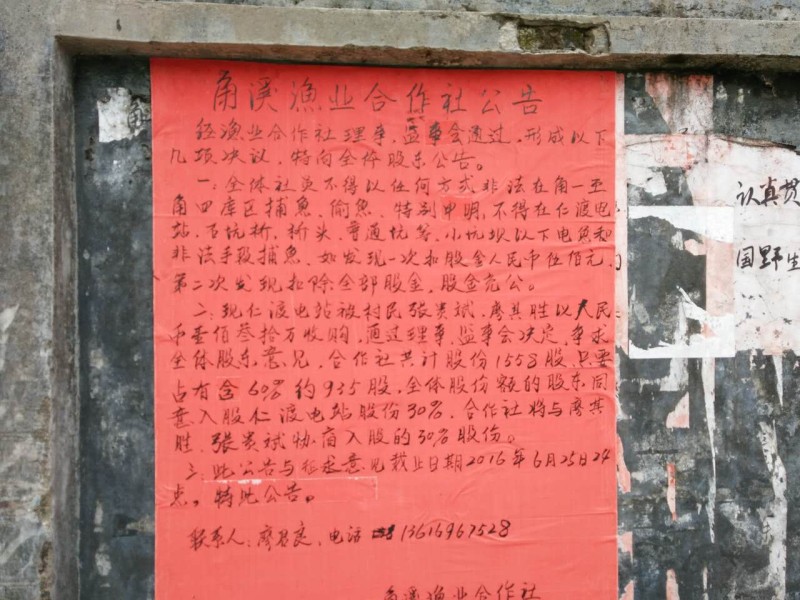 角溪渔业合作社公告
经渔业合作社理事、监事会通过,形成以下
几项决议,特向全体股东公告。
一:全体社员不得以任何方式非法在角一至
角四库区捕魚、偷魚,特别申明,不得在仁渡电
站、百坑桥、桥头、普通坑等,小坑坝以下电魚和
非法手段捕魚,如发现一次扣股金人民币伍佰元,
第二次发现扣除全部股金,股金充公。
二:现仁渡电站被村民张贵斌,廖其胜以人民
币壹佰叁拾万收购,通过理事、监事会决定,争求
全体股东意见,合作社共计股份1558股,只要
占有含60%约935股,全体股份额的股东同
意入股仁渡电站股份30%,合作社将与廖其
胜、张贵斌协商入股的30%股份。
三:此公告与征求意见截止日期2016年6月25日24
点。特此公告。
联系人:廖君良、电话 13616967528
角溪渔业合作社
认真贯
国野生